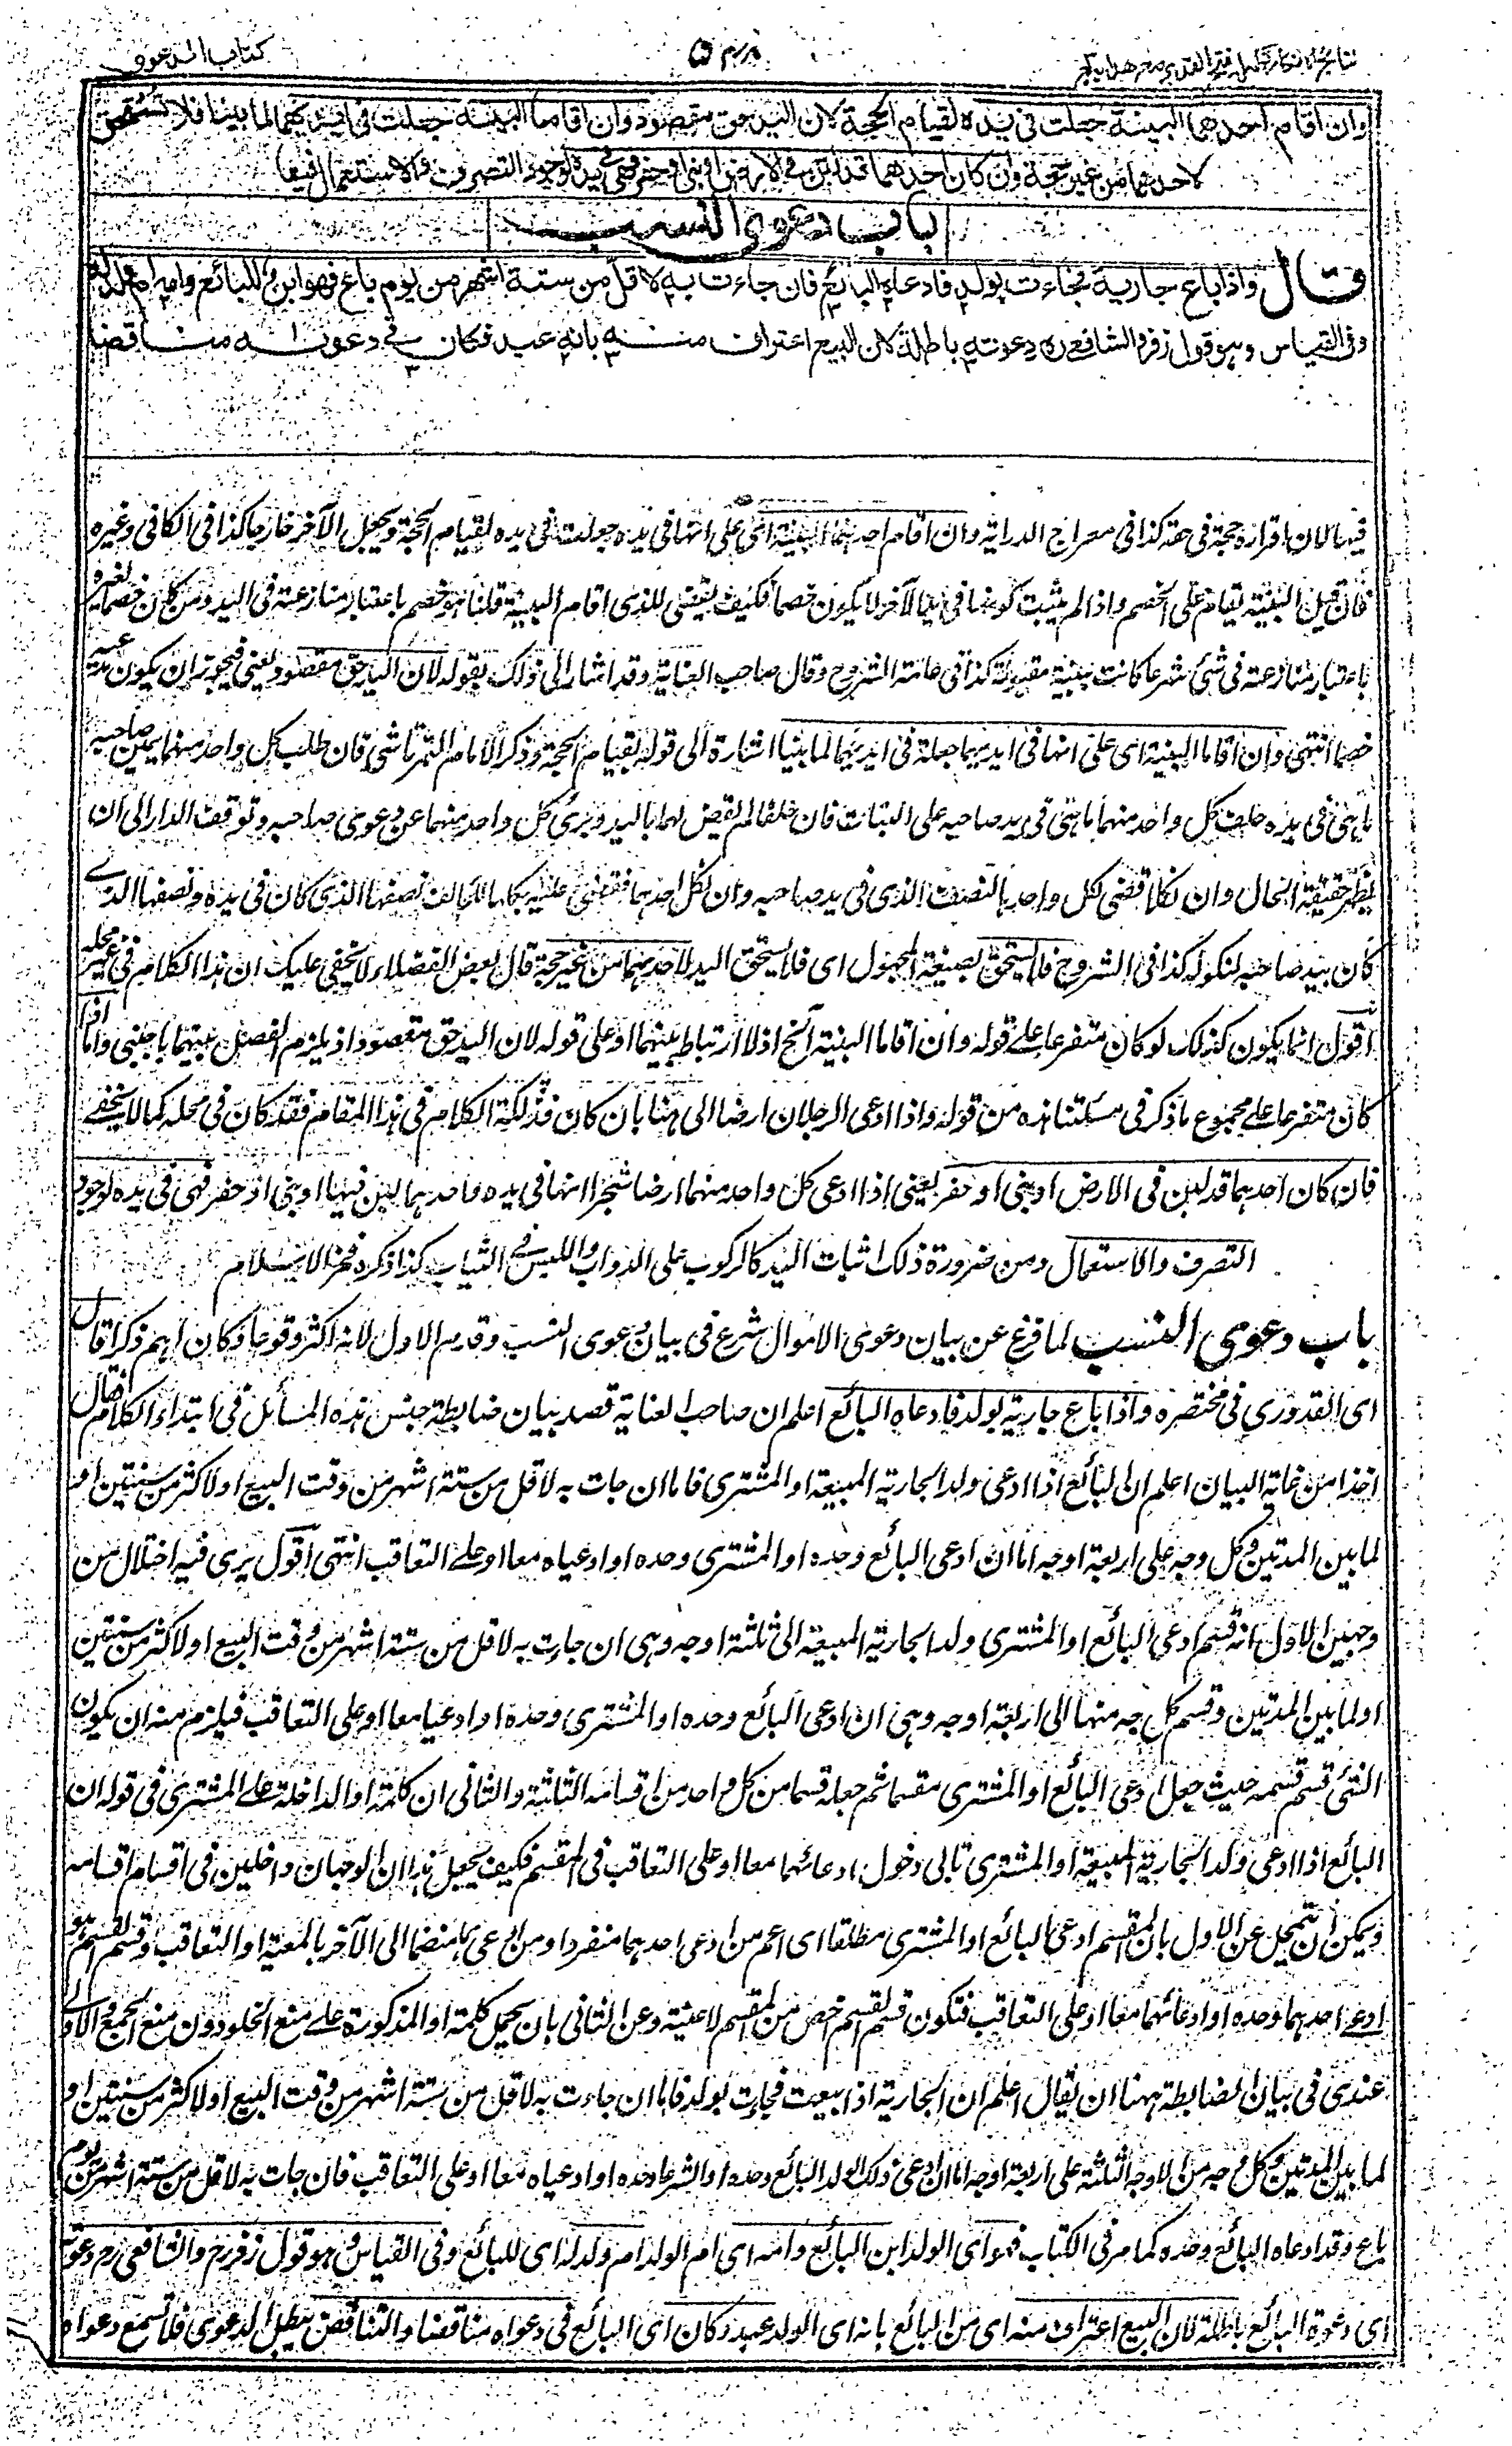 نتائج الافكار تكملة فتح القدير مع هداية ٥٤٣ كتاب الدعوى
وان اقام احدهما البينة جعلت في يده لقيام الحجة لان اليد حق مقصود وان اقاما البينة جعلت في ايديهما لما بينا فلا تستحق
لاحدهما من غير حجة وان كان احدهما قد لبن في الارض او بنى او حفر فهي في يده لوجود التصرف والاستعمال فيها
باب دعوى النسب
قال واذا باع جارية فجاءت بولد فادعاه البائع فان جاءت به لاقل من ستة اشهر من يوم باع فهو ابن للبائع وامه ام ولد له
وفي القياس وهو قول زفر والشافعي ره دعوته باطلة لان البيع اعتراف منه بانه عبد فكان في دعوته مناقضا
فيها لان اقراره حجة في حقه كذا في معراج الدراية وان اقام احدهما البينة اي على انها في يده جعلت في يده لقيام الحجة ويجعل الآخر خارجا كذا في الكافي وغيره
فان قيل البينة تقام على الخصم واذا لم يثبت كونها في يد الآخر لا يكون خصما فكيف يقضى للذي اقام البينة قلنا هو خصم باعتبار منازعته في اليد ومن كان خصما لغيره
باعتبار منازعته في شئ شرعا كانت بينته مقبولة كذا في عامة الشروح وقال صاحب العناية وقد اشار الى ذلك بقوله لان اليد حق مقصود يعني فيجوز ان يكون مدعيه
خصما انتهى وان اقاما البينة اي على انها في ايديهما جعلت في ايديهما لما بينا اشارة الى قوله لقيام الحجة وذكر الامام التمرتاشي فان طلب كل واحد منهما يمين صاحبه
ما هي في يده حلف كل واحد منهما ما هي في يد صاحبه على البتات فان حلفا لم يقض لهما باليد وبرئ كل واحد منهما عن دعوى صاحبه وتوقف الدار الى ان
يظهر حقيقة الحال وان نكلا قضى لكل واحد بالنصف الذي في يد صاحبه وان نكل احدهما قضى عليه بكلها للحالف نصفها الذي كان في يده ونصفها الذي
كان بيد صاحبه لنكوله كذا في الشروح فلا يستحق بصيغة المجهول اي فلا يستحق اليد لاحدهما من غير حجة قال بعض الفضلاء لا يخفى عليك ان هذا الكلام في غير محله
اقول انما يكون كذلك لو كان متفرعا على قوله وان اقاما البينة الخ اذ لا ارتباط بينهما او على قوله لان اليد حق مقصود اذ يلزم الفصل بينهما باجنبي واما اذا
كان متفرعا على مجموع ما ذكر في مسئلتنا هذه من قوله واذا ادعى الرجلان ارضا الى هنا بان كان فذلكة الكلام في هذا المقام فقد كان في محله كما لا يخفى
فان كان احدهما قد لبن في الارض او بنى او حفر يعني اذا ادعى كل واحد منهما ارضا شجرا انها في يده واحدهما لبن فيها او بنى او حفر فهي في يده لوجود
التصرف والاستعمال ومن ضرورة ذلك اثبات اليد كالركوب على الدواب واللبس في الثياب كذا ذكره فخر الاسلام
باب دعوى النسب لما فرغ عن بيان دعوى الاموال شرع في بيان دعوى النسب وقدم الاول لانه اكثر وقوعا وكان اهم ذكرا قال
اي القدوري في مختصره واذا باع جارية بولد فادعاه البائع اعلم ان صاحب العناية قصد بيان ضابطة جنس هذه المسائل في ابتداء الكلام فقال
اخذا من غاية البيان اعلم ان البائع اذا ادعى ولد الجارية المبيعة او المشتري فاما ان جات به لاقل من ستة اشهر من وقت البيع او لاكثر من سنتين او
لما بين المدتين وكل وجه على اربعة اوجه اما ان ادعى البائع وحده او المشتري وحده او ادعياه معا او على التعاقب انتهى اقول يرى فيه اختلال من
وجهين الاول انه قسم ادعى البائع او المشتري ولد الجارية المبيعة الى ثلثة اوجه وهي ان جاءت به لاقل من ستة اشهر من وقت البيع او لاكثر من سنتين
او لما بين المدتين وقسم كل وجه منها الى اربعة اوجه وهي ان ادعى البائع وحده او المشتري وحده او ادعيا معا او على التعاقب فيلزم منه ان يكون
الشئ قسم قسمه حيث جعل ادعى البائع او المشتري مقسما ثم جعله قسما من كل واحد من اقسامه الثلثة والثاني ان كلمة او الداخلة على المشتري في قوله ان
البائع اذا ادعى ولد الجارية المبيعة او المشتري تابى دخول ادعائهما معا او على التعاقب في المقسم فكيف يجعل هذان الوجهان داخلين في اقسام اقسامه
ويمكن ان يتمحل عن الاول بان المقسم ادعى البائع او المشتري مطلقا اي اعم من ادعى احدهما منفردا ومن ادعى منضما الى الآخر بالمعية او التعاقب وقسم القسم هو
ادعى احدهما وحده او ادعائهما معا او على التعاقب فتكون قسم القسم اخص من المقسم لا عينه وعن الثاني بان يحمل كلمة او المذكورة على منع الخلو دون منع الجمع والاولى
عندي في بيان الضابطة ههنا ان يقال اعلم ان الجارية اذا بيعت فجاءت بولد فاما ان جاءت به لاقل من ستة اشهر من وقت البيع او لاكثر من سنتين او
لما بين المدتين وكل وجه من الاوجه الثلثة على اربعة اوجه اما ان ادعى ذلك الولد البائع وحده او المشتري وحده او ادعياه معا او على التعاقب فان جات به لاقل من ستة اشهر من يوم
باع وقد ادعاه البائع وحده كما مر في الكتاب فهو اي الولد ابن البائع وامه اي ام الولد ام ولد له اي للبائع وفي القياس وهو قول زفر رح والشافعي رح دعوته
اي دعوة البائع باطلة لان البيع اعتراف منه اي من البائع بانه اي الولد عبد وكان اي البائع في دعواه مناقضا والتناقض يبطل الدعوى فلا تسمع دعواه